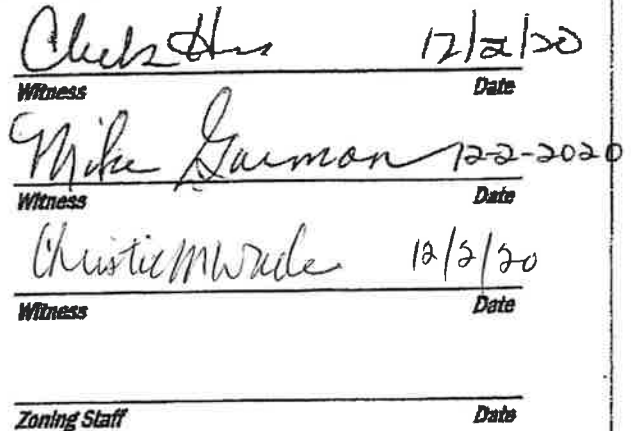 12/2/20
Witness Date
Mike Garmon 12-2-2020
Witness Date
Christie M Wade 12/2/20
Witness Date
Zoning Staff Date